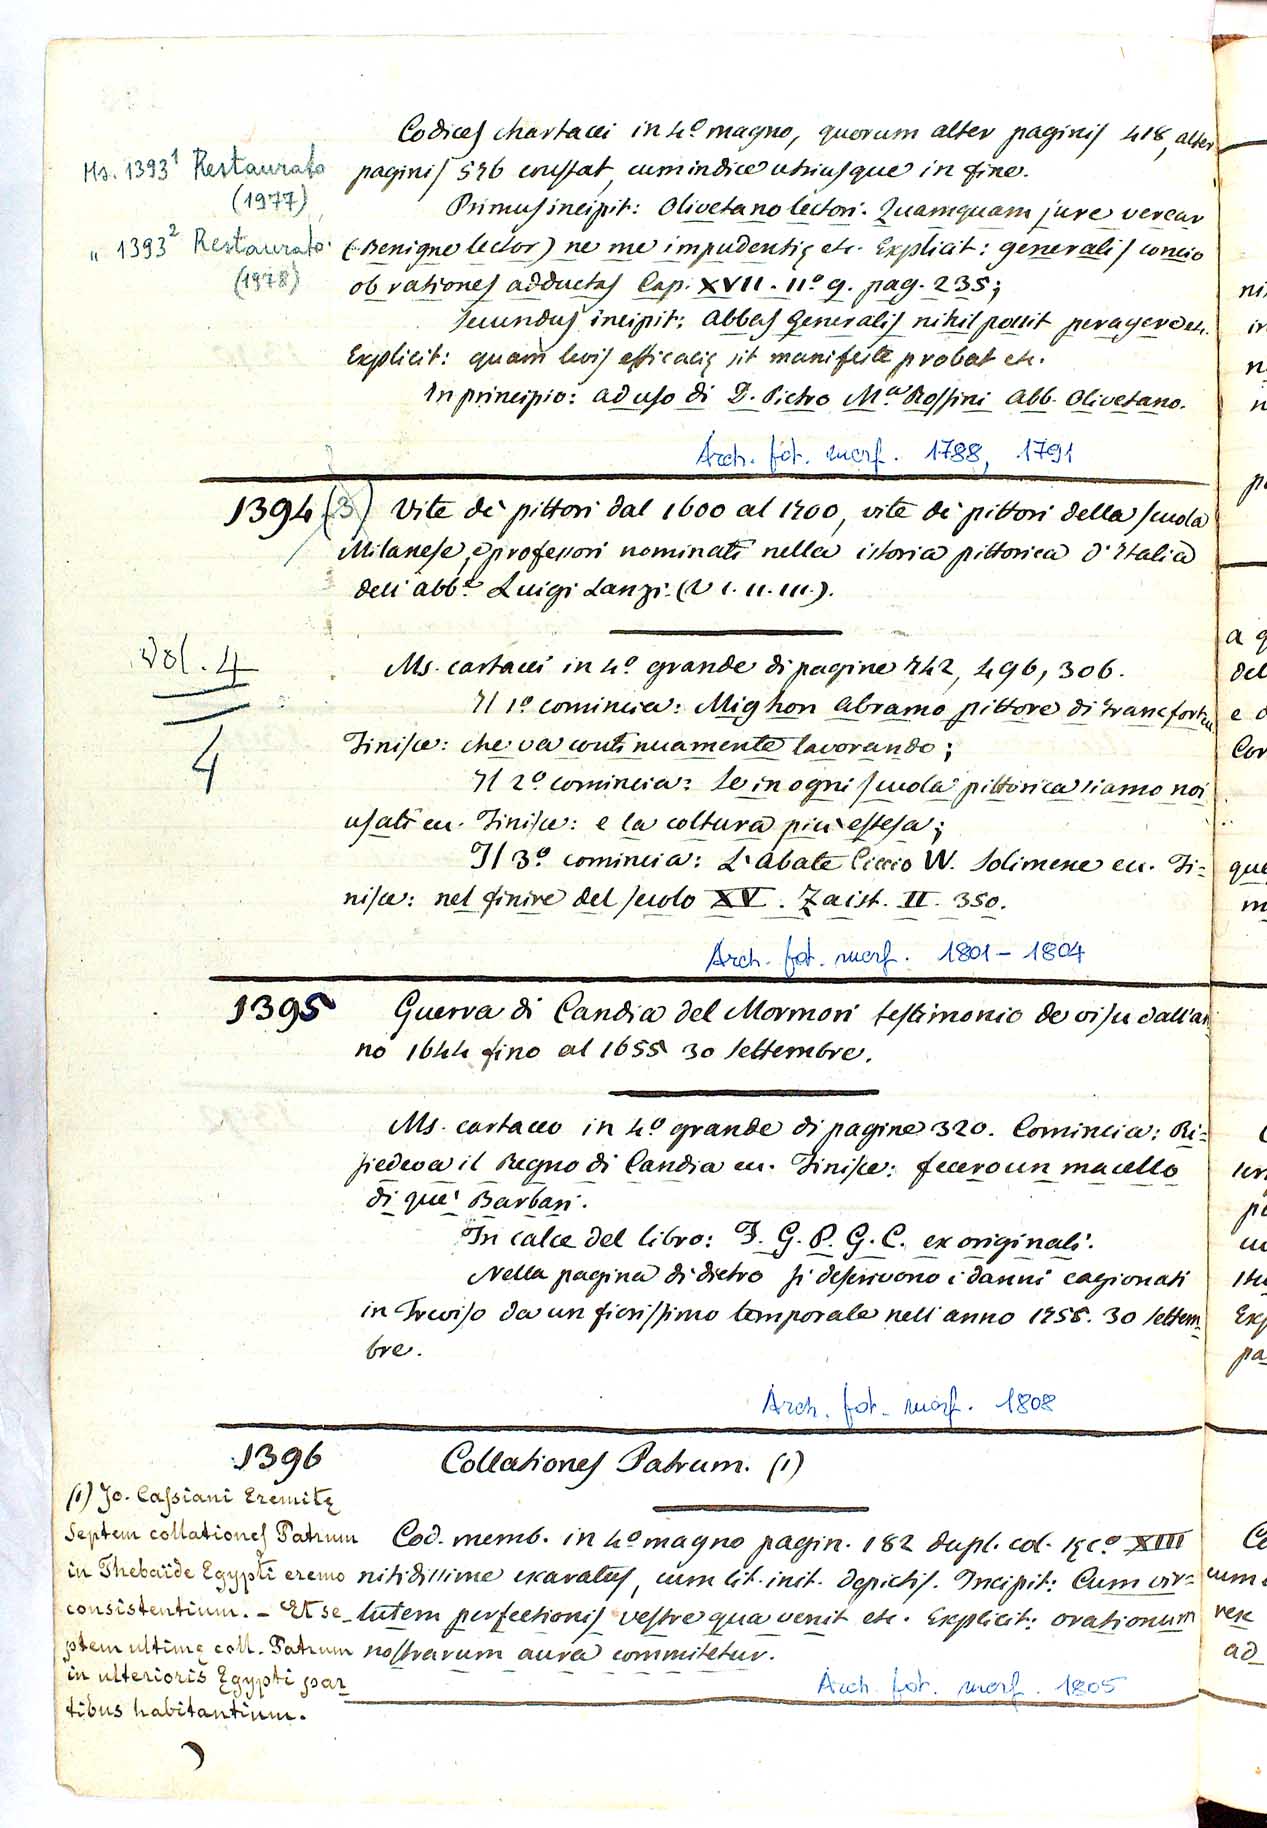 Codices chartacei in 4º magno, quorum alter paginis 418, alter
Ms. 1393¹ Restaurato
(1977)
paginis 576 constat, cum indice utriusque in fine.
Primus incipit: Olivetano lectori. Quamquam jure verear
„ 1393² Restaurato.
(1978)
(Benigne lector) ne me impudentię etc. Explicit: generalis concio
ob rationes adductas Cap. XVII. 11º g. pag. 235;
Secundus incipit: Abbas Generalis nihil possit peragere etc.
Explicit: quam levis efficacię sit manifeste probat etc.
In principio: ad uso di D. Pietro M.ª Rossini Abb. Olivetano.
Arch. fot. morf. 1788, 1791
1394 (3) Vite di pittori dal 1600 al 1700, vite di pittori della scuola
Milanese, e professori nominati nella istoria pittorica d'Italia
dell'abb.e Luigi Lanzi. (V I. II. III.).
Vol. 4
4
Ms. cartacei in 4º grande di pagine 742, 496, 306.
Il 1º comincia: Mighon Abramo pittore di Francfort ec.
Finisce: che va continuamente lavorando;
Il 2º comincia: Se in ogni scuola pittorica siamo noi
usati ec. Finisce: e la coltura più estesa;
Il 3º comincia: L'Abate Ciccio W. Solimene ec. Fi=
nisce: nel finire del secolo XV. Zaist. II. 350.
Arch. fot. morf. 1801 - 1804
1395 Guerra di Candia del Mormori testimonio de visu dall'an
no 1644 fino al 1655 30 Settembre.
Ms. cartaceo in 4º grande di pagine 320. Comincia: Ri=
siedeva il Regno di Candia ec. Finisce: fecero un macello
di que' Barbari.
In calce del libro: F. G. P. G. C. ex originali.
Nella pagina di dietro si descrivono i danni cagionati
in Treviso da un fierissimo temporale nell'anno 1758. 30 Settem=
bre.
Arch. fot. morf. 1808
1396 Collationes Patrum. (1)
Cod. memb. in 4º magno pagin. 182 dupl. col. Sęcº XIII
nitidissime exaratus, cum lit. init. depictis. Incipit: Cum vir=
tutem perfectionis vestre qua venit etc. Explicit: orationum
nostrarum aura commitetur.
Arch. fot. morf. 1805
(1) Jo. Cassiani Eremitę
Septem collationes Patrum
in Thebaïde Egypti eremo
consistentium. - Et se-
ptem ultimę coll. Patrum
in ulterioris Egypti par
tibus habitantium.